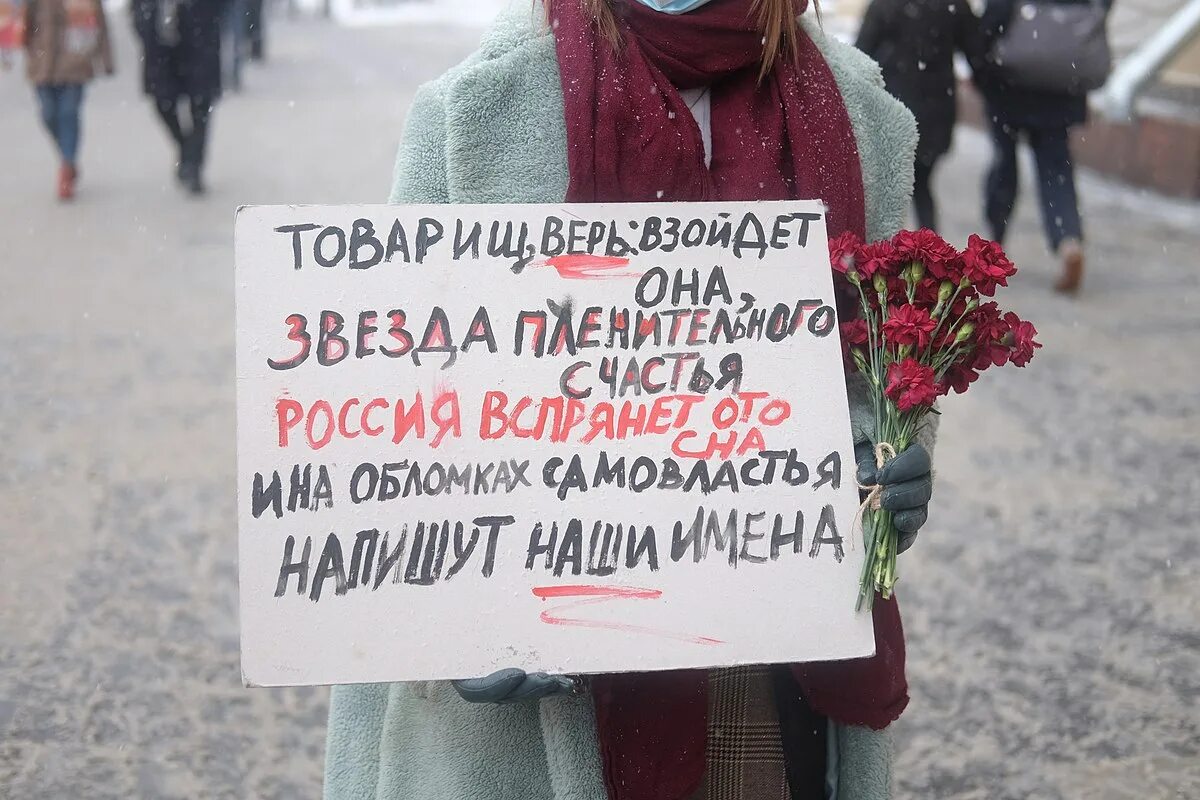 ТОВАРИЩ, ВЕРЬ: ВЗОЙДЕТ
ОНА,
ЗВЕЗДА ПЛЕНИТЕЛЬНОГО
СЧАСТЬЯ
РОССИЯ ВСПРЯНЕТ ОТО
СНА
И НА ОБЛОМКАХ САМОВЛАСТЬЯ
НАПИШУТ НАШИ ИМЕНА